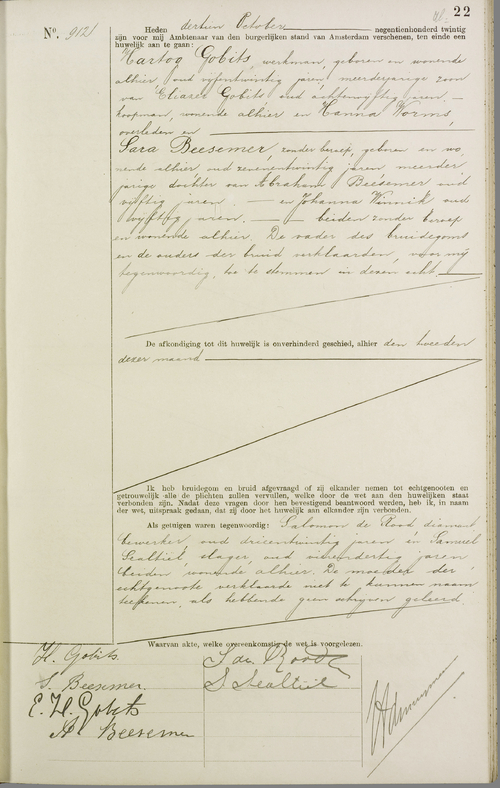 22
Nº. 912
Heden dertien October negentienhonderd twintig
zijn voor mij Ambtenaar van den burgerlijken stand van Amsterdam verschenen, ten einde een
huwelijk aan te gaan:
Hartog Gobits, werkman, geboren en wonende
alhier, oud vijfentwintig jaren, meerderjarige zoon
van Eliazer Gobits oud achtenvyftig jaren,
koopman, wonende alhier en Hanna Worms,
overleden en
Sara Beesemer, zonder beroep, geboren en wo,
nende alhier, oud zevenentwintig jaren, meerder,
jarige dochter van Abraham Beesemer oud
vyftig jaren en Johanna Winnik oud
vyftig jaren, beiden zonder beroep
en wonende alhier. De vader des bruidegoms
en de ouders der bruid verklaarden, voor mij
tegenwoordig, toe te stemmen in dezen echt.
De afkondiging tot dit huwelijk is onverhinderd geschied, alhier den tweeden
dezer maand
Ik heb bruidegom en bruid afgevraagd of zij elkander nemen tot echtgenooten en
getrouwelijk alle de plichten zullen vervullen, welke door de wet aan den huwelijken staat
verbonden zijn. Nadat deze vragen door hen bevestigend beantwoord werden, heb ik, in naam
der wet, uitspraak gedaan, dat zij door het huwelijk aan elkander zijn verbonden.
Als getuigen waren tegenwoordig: Salomon de Rood diamant
bewerker oud driëentwintig jaren en Samuel
Sealtiël slager oud vierendertig jaren
beiden wonende alhier. De moeder der
echtgenoote verklaarde niet te kunnen naam
teekenen, als hebbende geen schryven geleerd.
Waarvan akte, welke overeenkomstig de wet is voorgelezen.
H. Gobits
S de Rood
S. Beesemer.
S Sealtiël
E. H. Gobits
A Beesemer